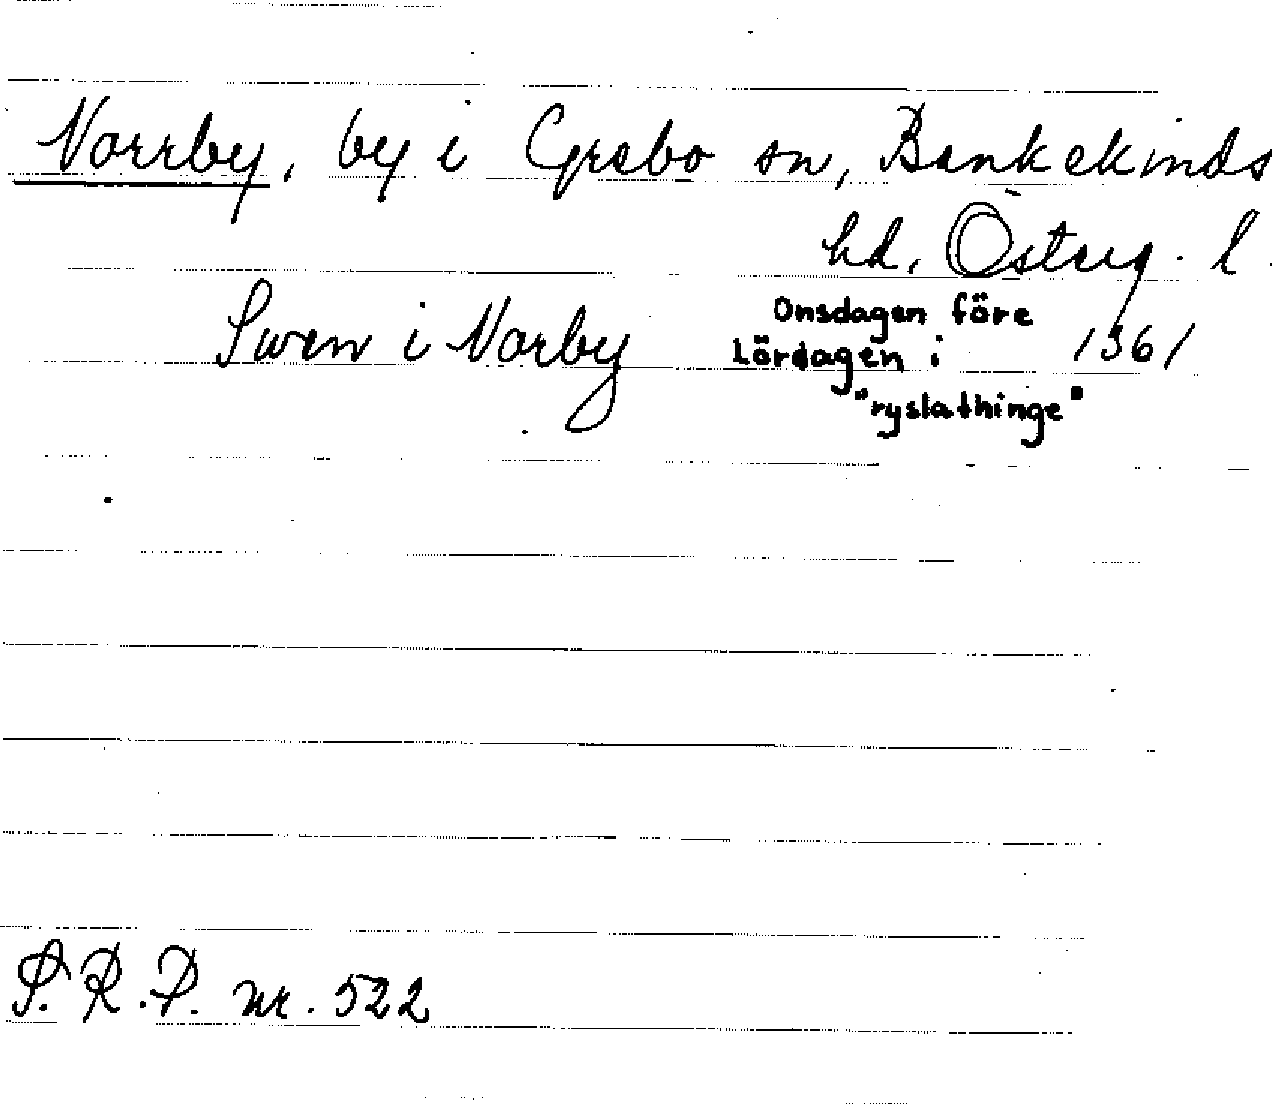 Norrby, by i Grebo sn, Bankekinds
hd, Österg. l.
Swen i Norby Onsdagen före Lördagen i "ryslathinge" 1361
S.R.P. nr. 522